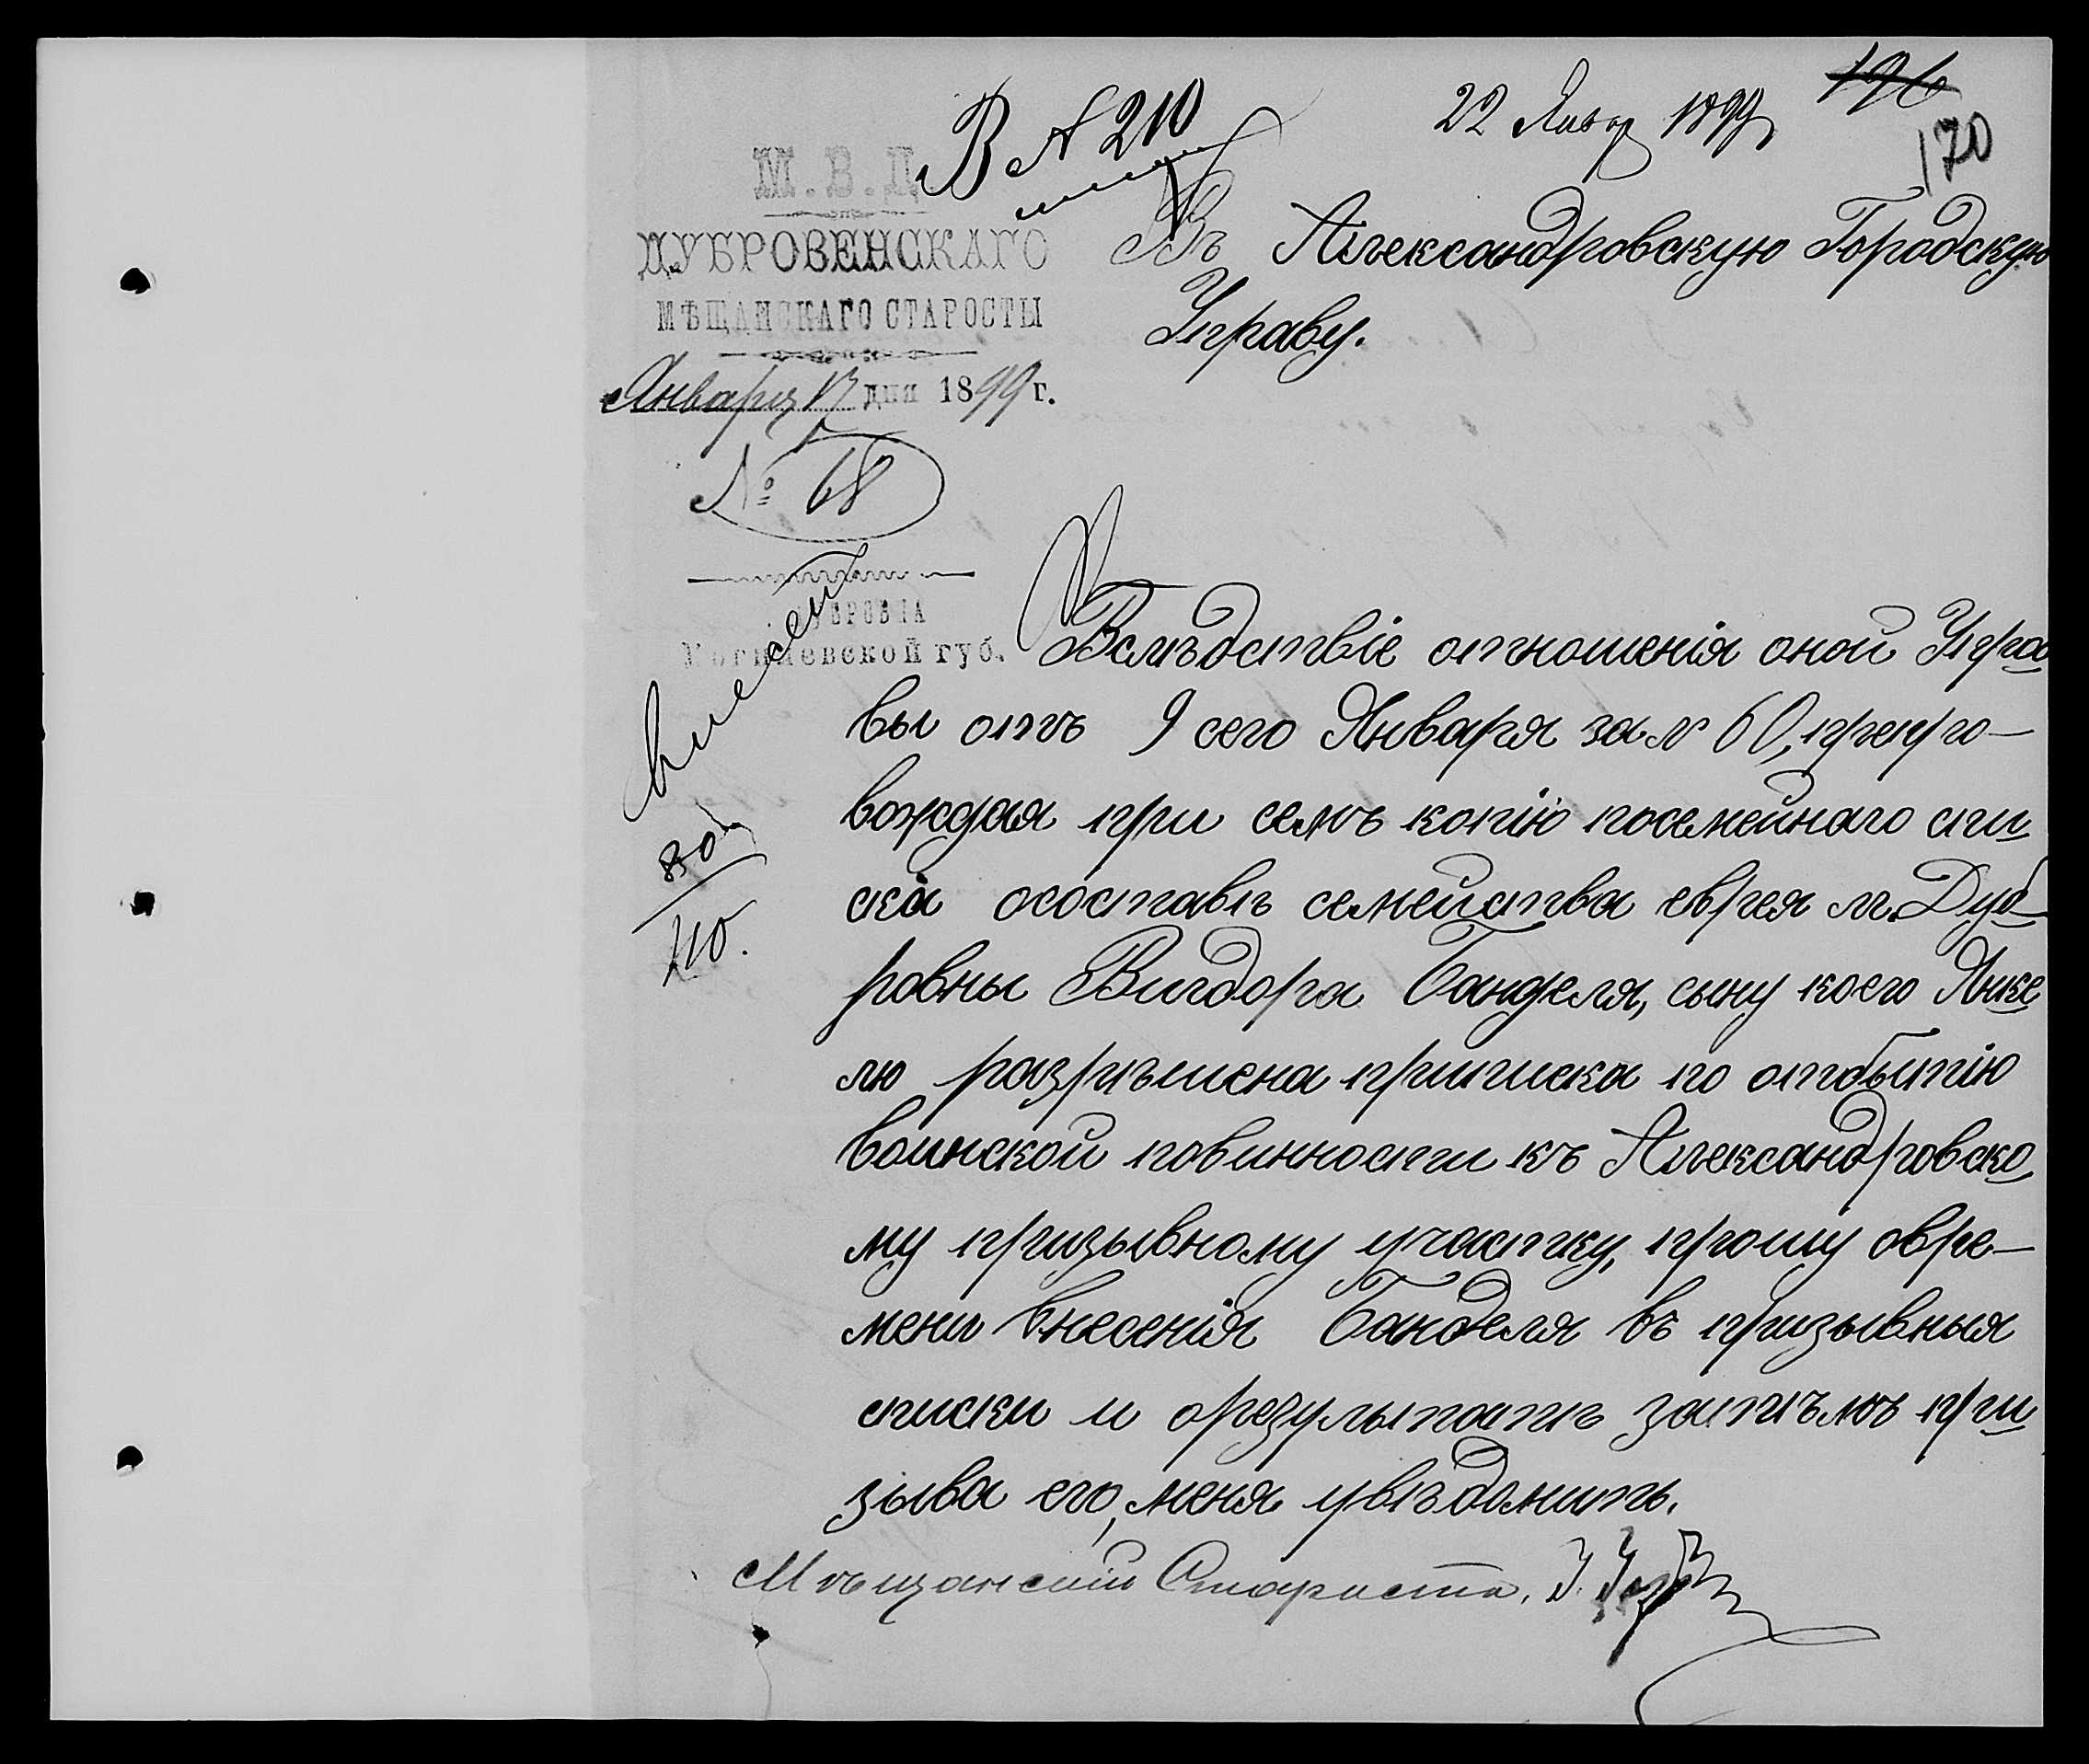 В № 210
22 Янвр 1899
196
170
М.В.Д.
ДУБРОВЕНСКАГО
МѢЩАНСКАГО СТАРОСТЫ
Января 13 дня 1899 г.
№ 68
ДУБРОВНА
Могилевской губ.
Въ Александровскую Городскую
Управу.
Вслѣдствіе отношенія оной Упра
вы отъ 9 сего Января за № 60, препро-
вождая при семъ копію посемейнаго спи
ска осоставѣ семейства еврея м. Дуб-
ровны Вигдора Банделя, сыну коего Янке
лю разрѣшена приписка по отбытію
воинской повинности къ Александровско
му призывному участку, прошу овре-
мени внесенія Банделя въ призывныя
списки и орезультатѣ затѣмъ при
зыва его, меня увѣдомить.
Мѣщанскій Староста,
210.